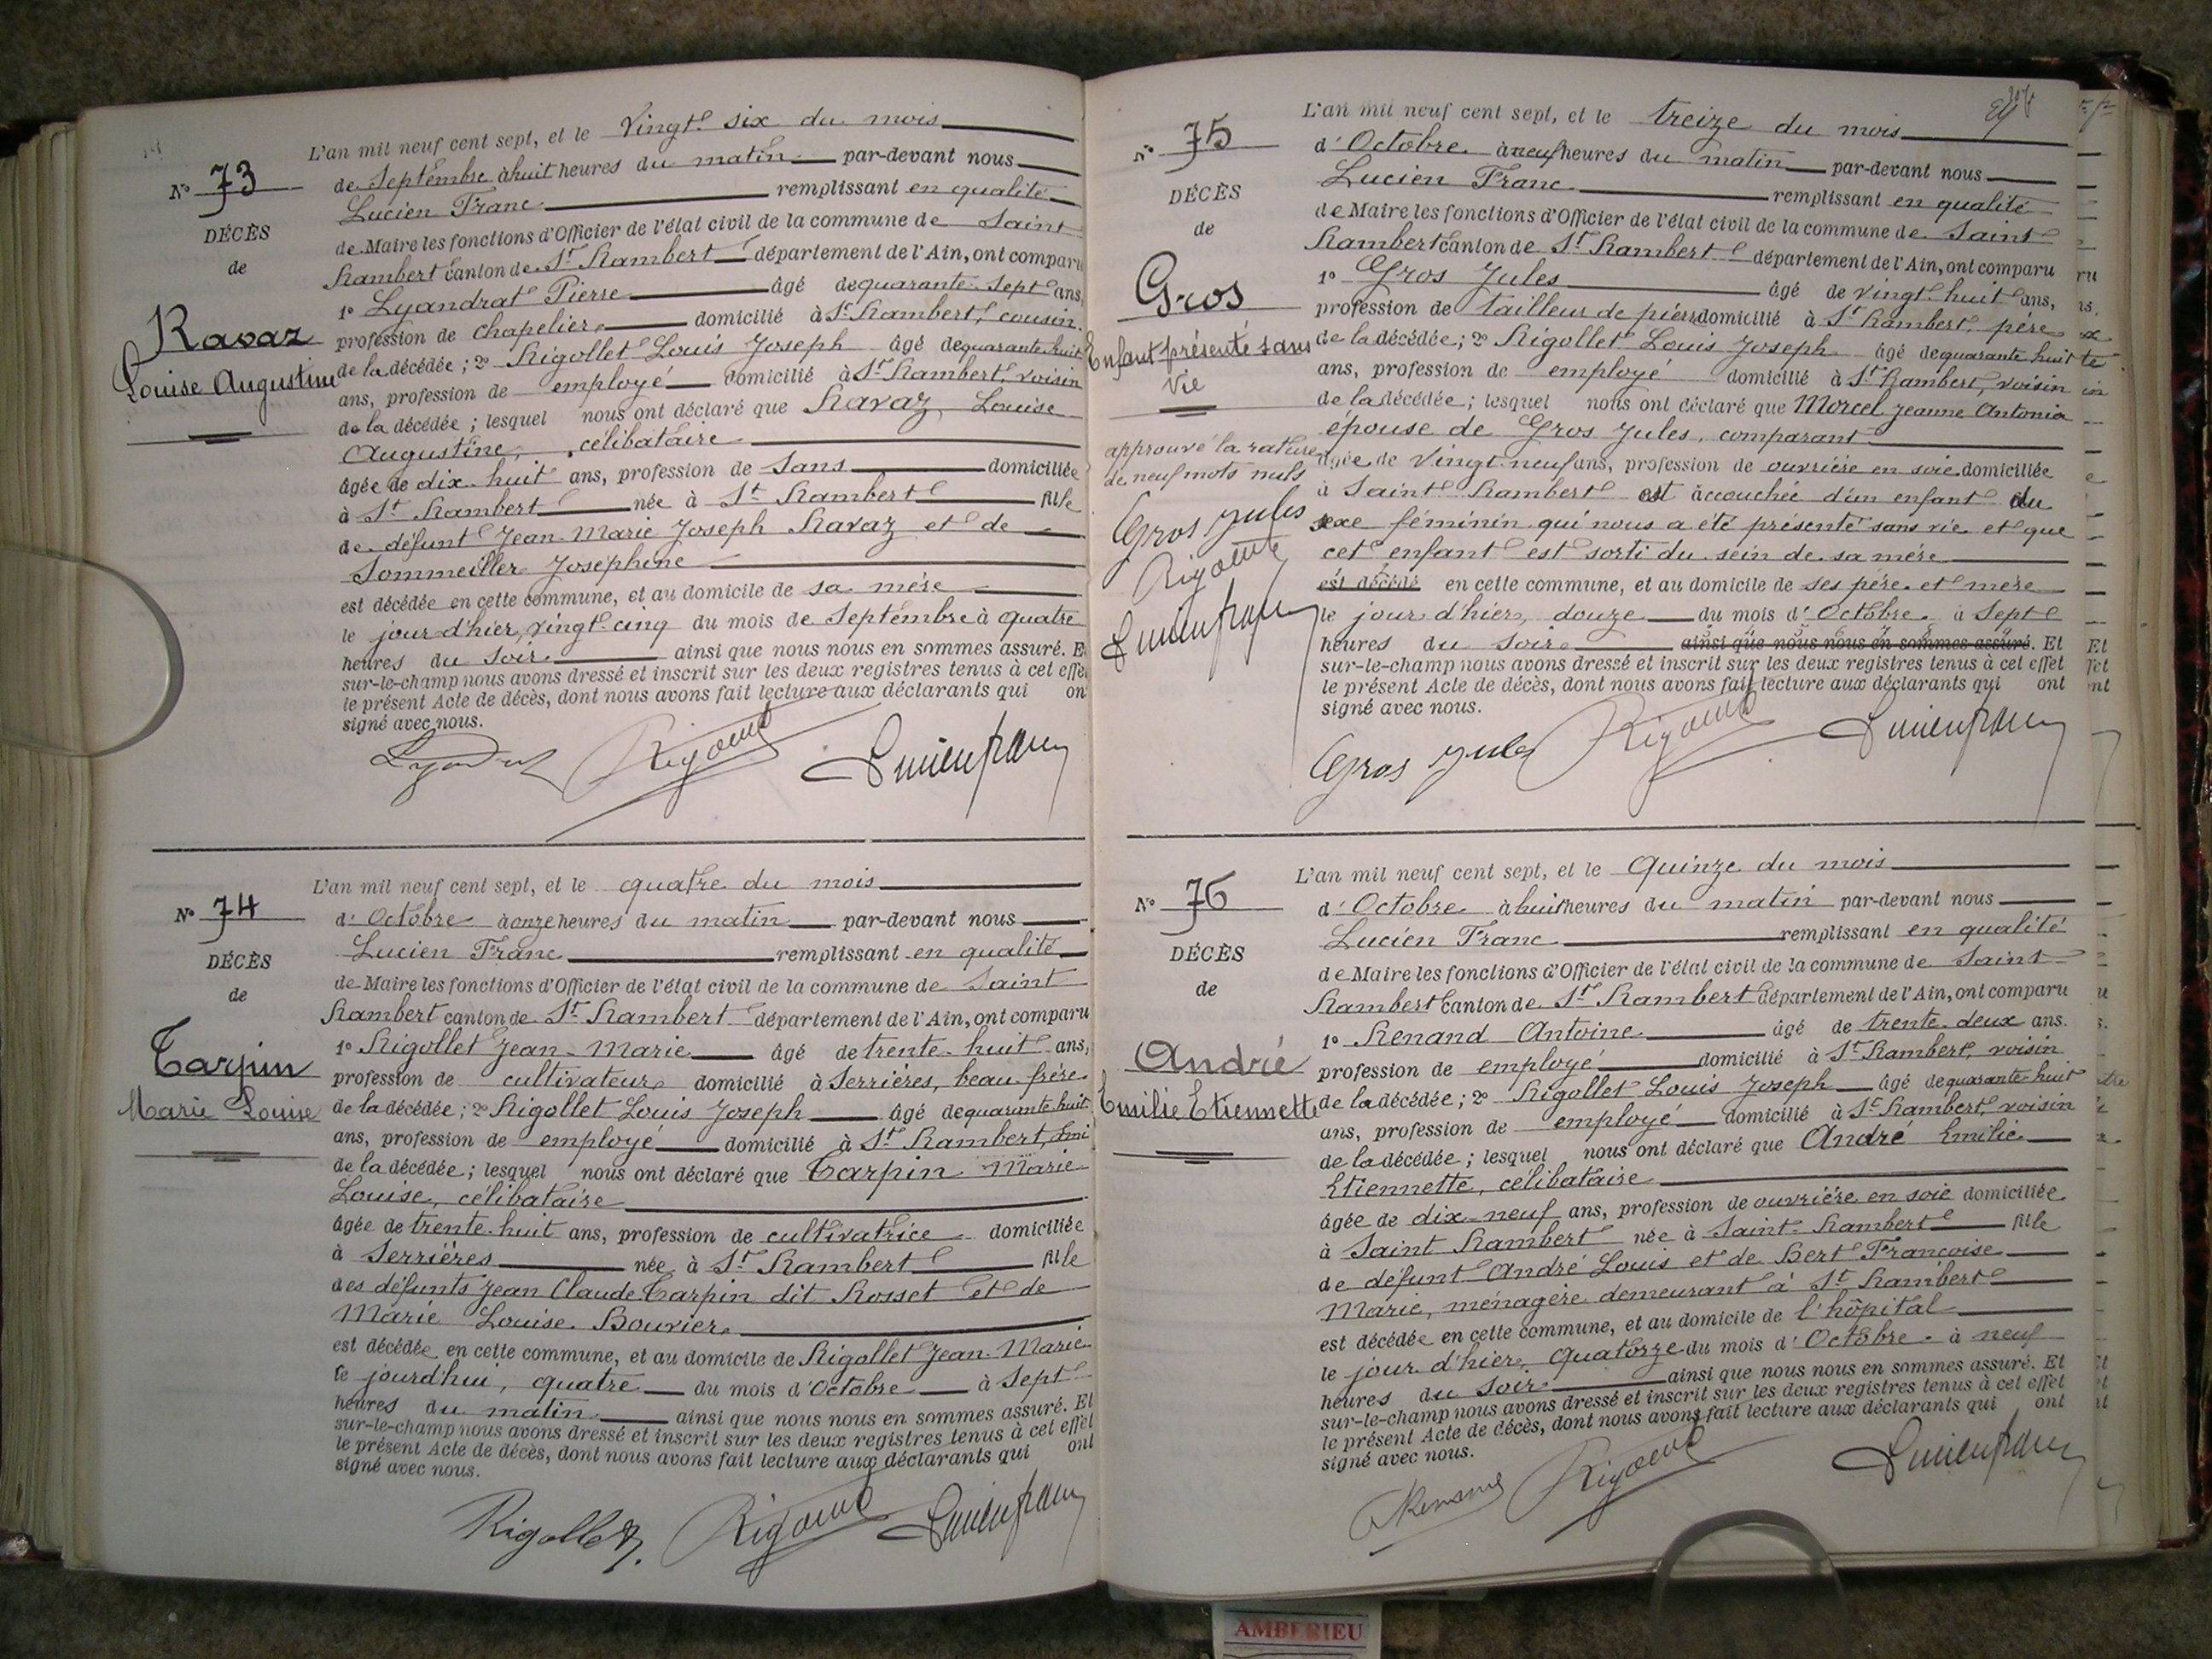 N° 73
DÉCÈS
de
Ravaz
Louise Augustine
L'an mil neuf cent sept, et le vingt six du mois
de Septembre à huit heures du matin par-devant nous
Lucien Franc remplissant en qualité
de Maire les fonctions d'Officier de l'état civil de la commune de Saint
Rambert canton de St Rambert département de l'Ain, ont comparu
1° Lyandrat Pierre âgé de quarante-sept ans,
profession de chapelier domicilié à St Rambert, cousin
de la décédée; 2° Rigollet Louis Joseph âgé de quarante huit
ans, profession de employé domicilié à St Rambert, voisin
de la décédée; lesquel nous ont déclaré que Ravaz Louise
Augustine, célibataire
âgée de dix-huit ans, profession de sans domiciliée
à St Rambert née à St Rambert fille
de défunt Jean-Marie Joseph Ravaz et de
Sommeiller Joséphine
est décédée en cette commune, et au domicile de sa mère
le jour d'hier, vingt-cinq du mois de Septembre à quatre
heures du soir ainsi que nous nous en sommes assuré. E
sur-le-champ nous avons dressé et inscrit sur les deux registres tenus à cet effe
le présent Acte de décès, dont nous avons fait lecture aux déclarants qui on
signé avec nous.
Lucien franc
N° 74
DÉCÈS
de
Tarpin
Marie Louise
L'an mil neuf cent sept, et le quatre du mois
d'Octobre à onze heures du matin par-devant nous
Lucien Franc remplissant en qualité
de Maire les fonctions d'Officier de l'état civil de la commune de Saint
Rambert canton de St Rambert département de l'Ain, ont comparu
1° Rigollet Jean-Marie âgé de trente-huit ans,
profession de cultivateur domicilié à Serrières, beau-frère
de la décédée; 2° Rigollet Louis Joseph âgé de quarante huit
ans, profession de employé domicilié à St Rambert, ami
de la décédée; lesquel nous ont déclaré que Tarpin Marie
Louise, célibataire
âgée de trente-huit ans, profession de cultivatrice domiciliée
à Serrières née à St Rambert fille
des défunts Jean Claude Tarpin dit Rosset et de
Marie Louise Bouvier
est décédée en cette commune, et au domicile de Rigollet Jean-Marie
le jourd'hui, quatre du mois d'Octobre à sept
heures du matin ainsi que nous nous en sommes assuré. Et
sur-le-champ nous avons dressé et inscrit sur les deux registres tenus à cet effet
le présent Acte de décès, dont nous avons fait lecture aux déclarants qui ont
signé avec nous.
Rigollet Lucien franc
N° 75
DÉCÈS
de
Gros
Enfant présenté sans
vie
approuvé la rature
de neuf mots nuls
Gros Jules
Lucien franc
L'an mil neuf cent sept, et le treize du mois
d'Octobre à neuf heures du matin par-devant nous
Lucien Franc remplissant en qualité
de Maire les fonctions d'Officier de l'état civil de la commune de Saint
Rambert canton de St Rambert département de l'Ain, ont comparu
1° Gros Jules âgé de vingt-huit ans,
profession de tailleur de pierre domicilié à St Rambert, père
de la décédée; 2° Rigollet Louis Joseph âgé de quarante huit
ans, profession de employé domicilié à St Rambert, voisin
de la décédée; lesquel nous ont déclaré que Morcel Jeanne Antonia
épouse de Gros Jules, comparant
âgée de vingt-neuf ans, profession de ouvrière en soie domiciliée
à Saint Rambert est accouchée d'un enfant du
sexe féminin qui nous a été présenté sans vie et que
cet enfant est sorti du sein de sa mère
est décédé en cette commune, et au domicile de ses père et mère
le jour d'hier, douze du mois d'Octobre à sept
heures du soir ainsi que nous nous en sommes assuré. Et
sur-le-champ nous avons dressé et inscrit sur les deux registres tenus à cet effet
le présent Acte de décès, dont nous avons fait lecture aux déclarants qui ont
signé avec nous.
Gros Jules Lucien franc
N° 76
DÉCÈS
de
André
Emilie Etiennette
L'an mil neuf cent sept, et le quinze du mois
d'Octobre à huit heures du matin par-devant nous
Lucien Franc remplissant en qualité
de Maire les fonctions d'Officier de l'état civil de la commune de Saint
Rambert canton de St Rambert département de l'Ain, ont comparu
1° Renand Antoine âgé de trente-deux ans.
profession de employé domicilié à St Rambert, voisin
de la décédée; 2° Rigollet Louis Joseph âgé de quarante huit
ans, profession de employé domicilié à St Rambert, voisin
de la décédée; lesquel nous ont déclaré que André Emilie
Etiennette, célibataire
âgée de dix-neuf ans, profession de ouvrière en soie domiciliée
à Saint Rambert née à Saint-Rambert fille
de défunt André Louis et de Bert Françoise
Marie, ménagère demeurant à St Rambert
est décédée en cette commune, et au domicile de l'hôpital
le jour d'hier, quatorze du mois d'Octobre à neuf
heures du soir ainsi que nous nous en sommes assuré. Et
sur-le-champ nous avons dressé et inscrit sur les deux registres tenus à cet effet
le présent Acte de décès, dont nous avons fait lecture aux déclarants qui ont
signé avec nous.
Lucien franc
AMBERIEU